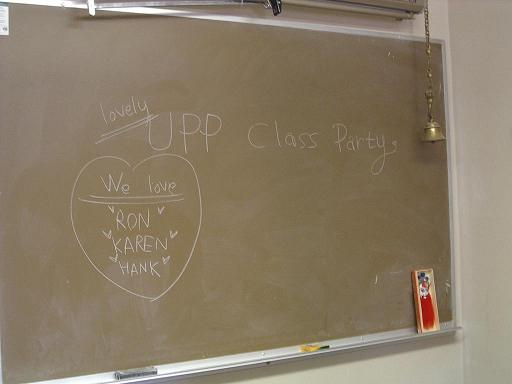 lovely
UPP Class Party.
We love
"RON"
"KAREN"
"HANK"